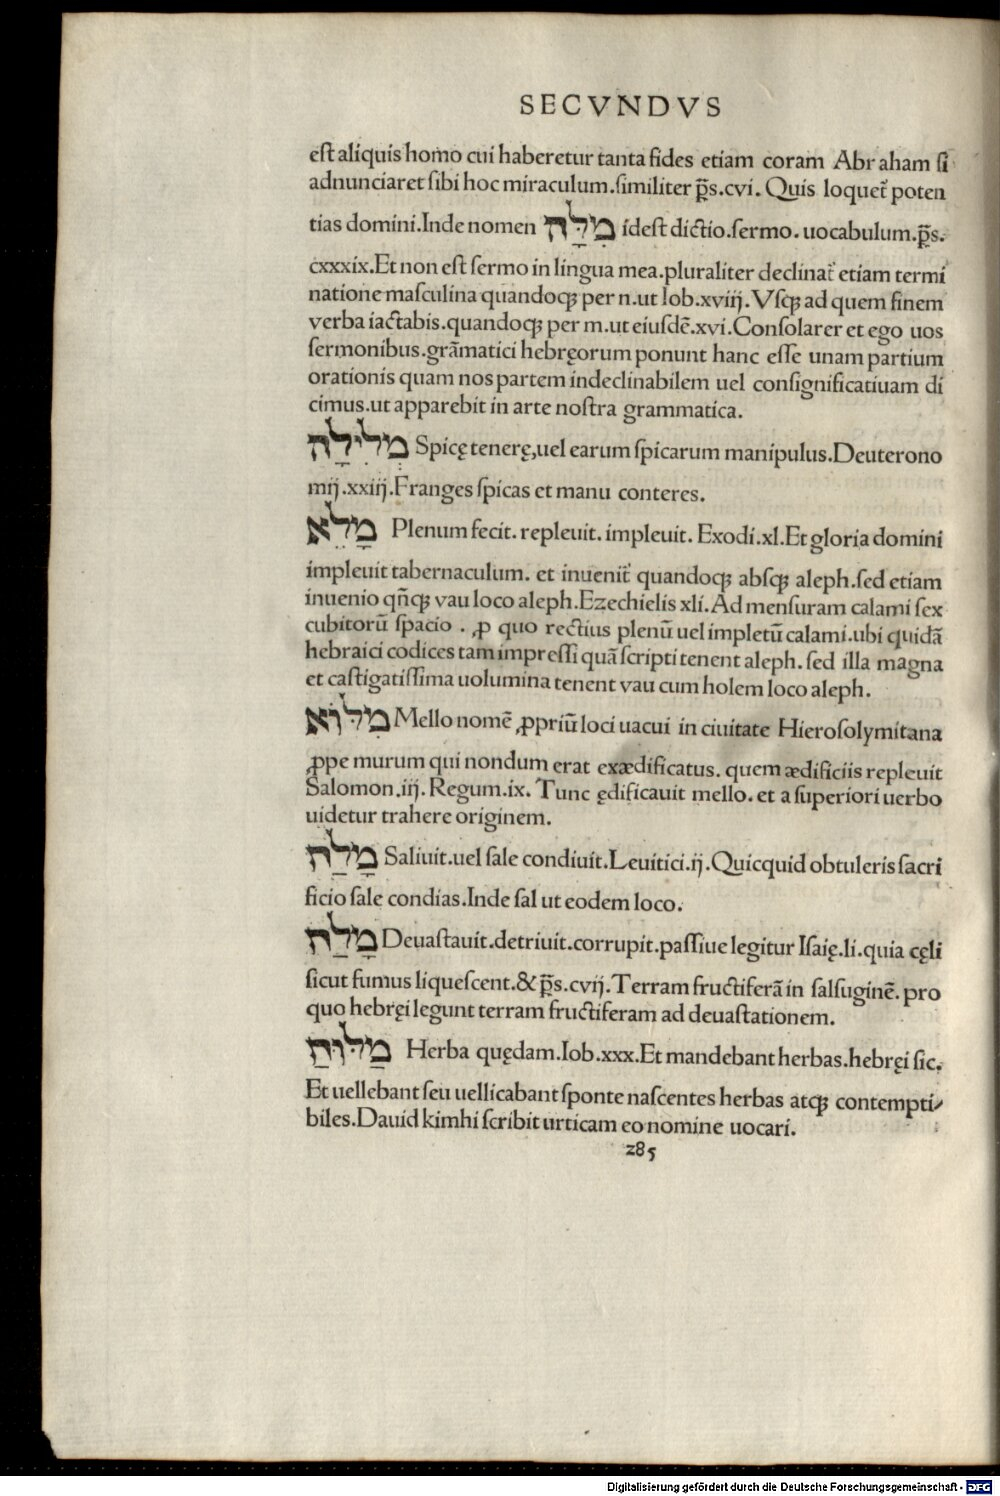 SECVNDVS
eſt aliquis homo cui haberetur tanta fides etiam coram Abraham ſi
adnunciaret ſibi hoc miraculum.ſimiliter p̄s.cvi. Quis loquet̄ poten
tias domini.Inde nomen מִלָּה ideſt dictio.ſermo. uocabulum.p̄s.
cxxxix.Et non eſt ſermo in lingua mea.pluraliter declinat̄ etiam termi
natione maſculina quandoqꝫ per n.ut Iob.xviij.Vſqꝫ ad quem finem
verba iactabis.quandoqꝫ per m.ut eiuſdē.xvi.Conſolarer et ego uos
ſermonibus.grāmatici hebręorum ponunt hanc eſſe unam partium
orationis quam nos partem indeclinabilem uel conſignificatiuam di
cimus.ut apparebit in arte noſtra grammatica.
מְלִילָה Spicę tenerę,uel earum ſpicarum manipulus.Deuterono
mij.xxiij.Franges ſpicas et manu conteres.
מָלֵא Plenum fecit. repleuit. impleuit. Exodi.xl.Et gloria domini
impleuit tabernaculum. et inuenit̄ quandoqꝫ abſqꝫ aleph.ſed etiam
inuenio qn̄qꝫ vau loco aleph.Ezechielis xli.Ad menſuram calami ſex
cubitorū ſpacio . ꝓ quo rectius plenū uel impletū calami.ubi quidā
hebraici codices tam impreſſi quā ſcripti tenent aleph. ſed illa magna
et caſtigatiſſima uolumina tenent vau cum holem loco aleph.
מִלּוֹא Mello nomē ꝓpriū loci uacui in ciuitate Hieroſolymitana
ꝓpe murum qui nondum erat exædificatus. quem ædificiis repleuit
Salomon.iij. Regum.ix. Tunc ędificauit mello. et a ſuperiori uerbo
uidetur trahere originem.
מָלַח Saliuit.uel ſale condiuit.Leuitici.ij.Quicquid obtuleris ſacri
ficio ſale condias.Inde ſal ut eodem loco.
מָלַח Deuaſtauit.detriuit.corrupit.paſſiue legitur Iſaię.li.quia cęli
ſicut fumus liqueſcent.& p̄s.cvij.Terram fructiferā in ſalſuginē. pro
quo hebręi legunt terram fructiferam ad deuaſtationem.
מַלּוּחַ Herba quędam.Iob.xxx.Et mandebant herbas.hebręi ſic.
Et uellebant ſeu uellicabant ſponte naſcentes herbas atqꝫ contempti⸗
biles.Dauid kimhi ſcribit urticam eo nomine uocari.
285
Digitalisierung gefördert durch die Deutsche Forschungsgemeinschaft - DFG